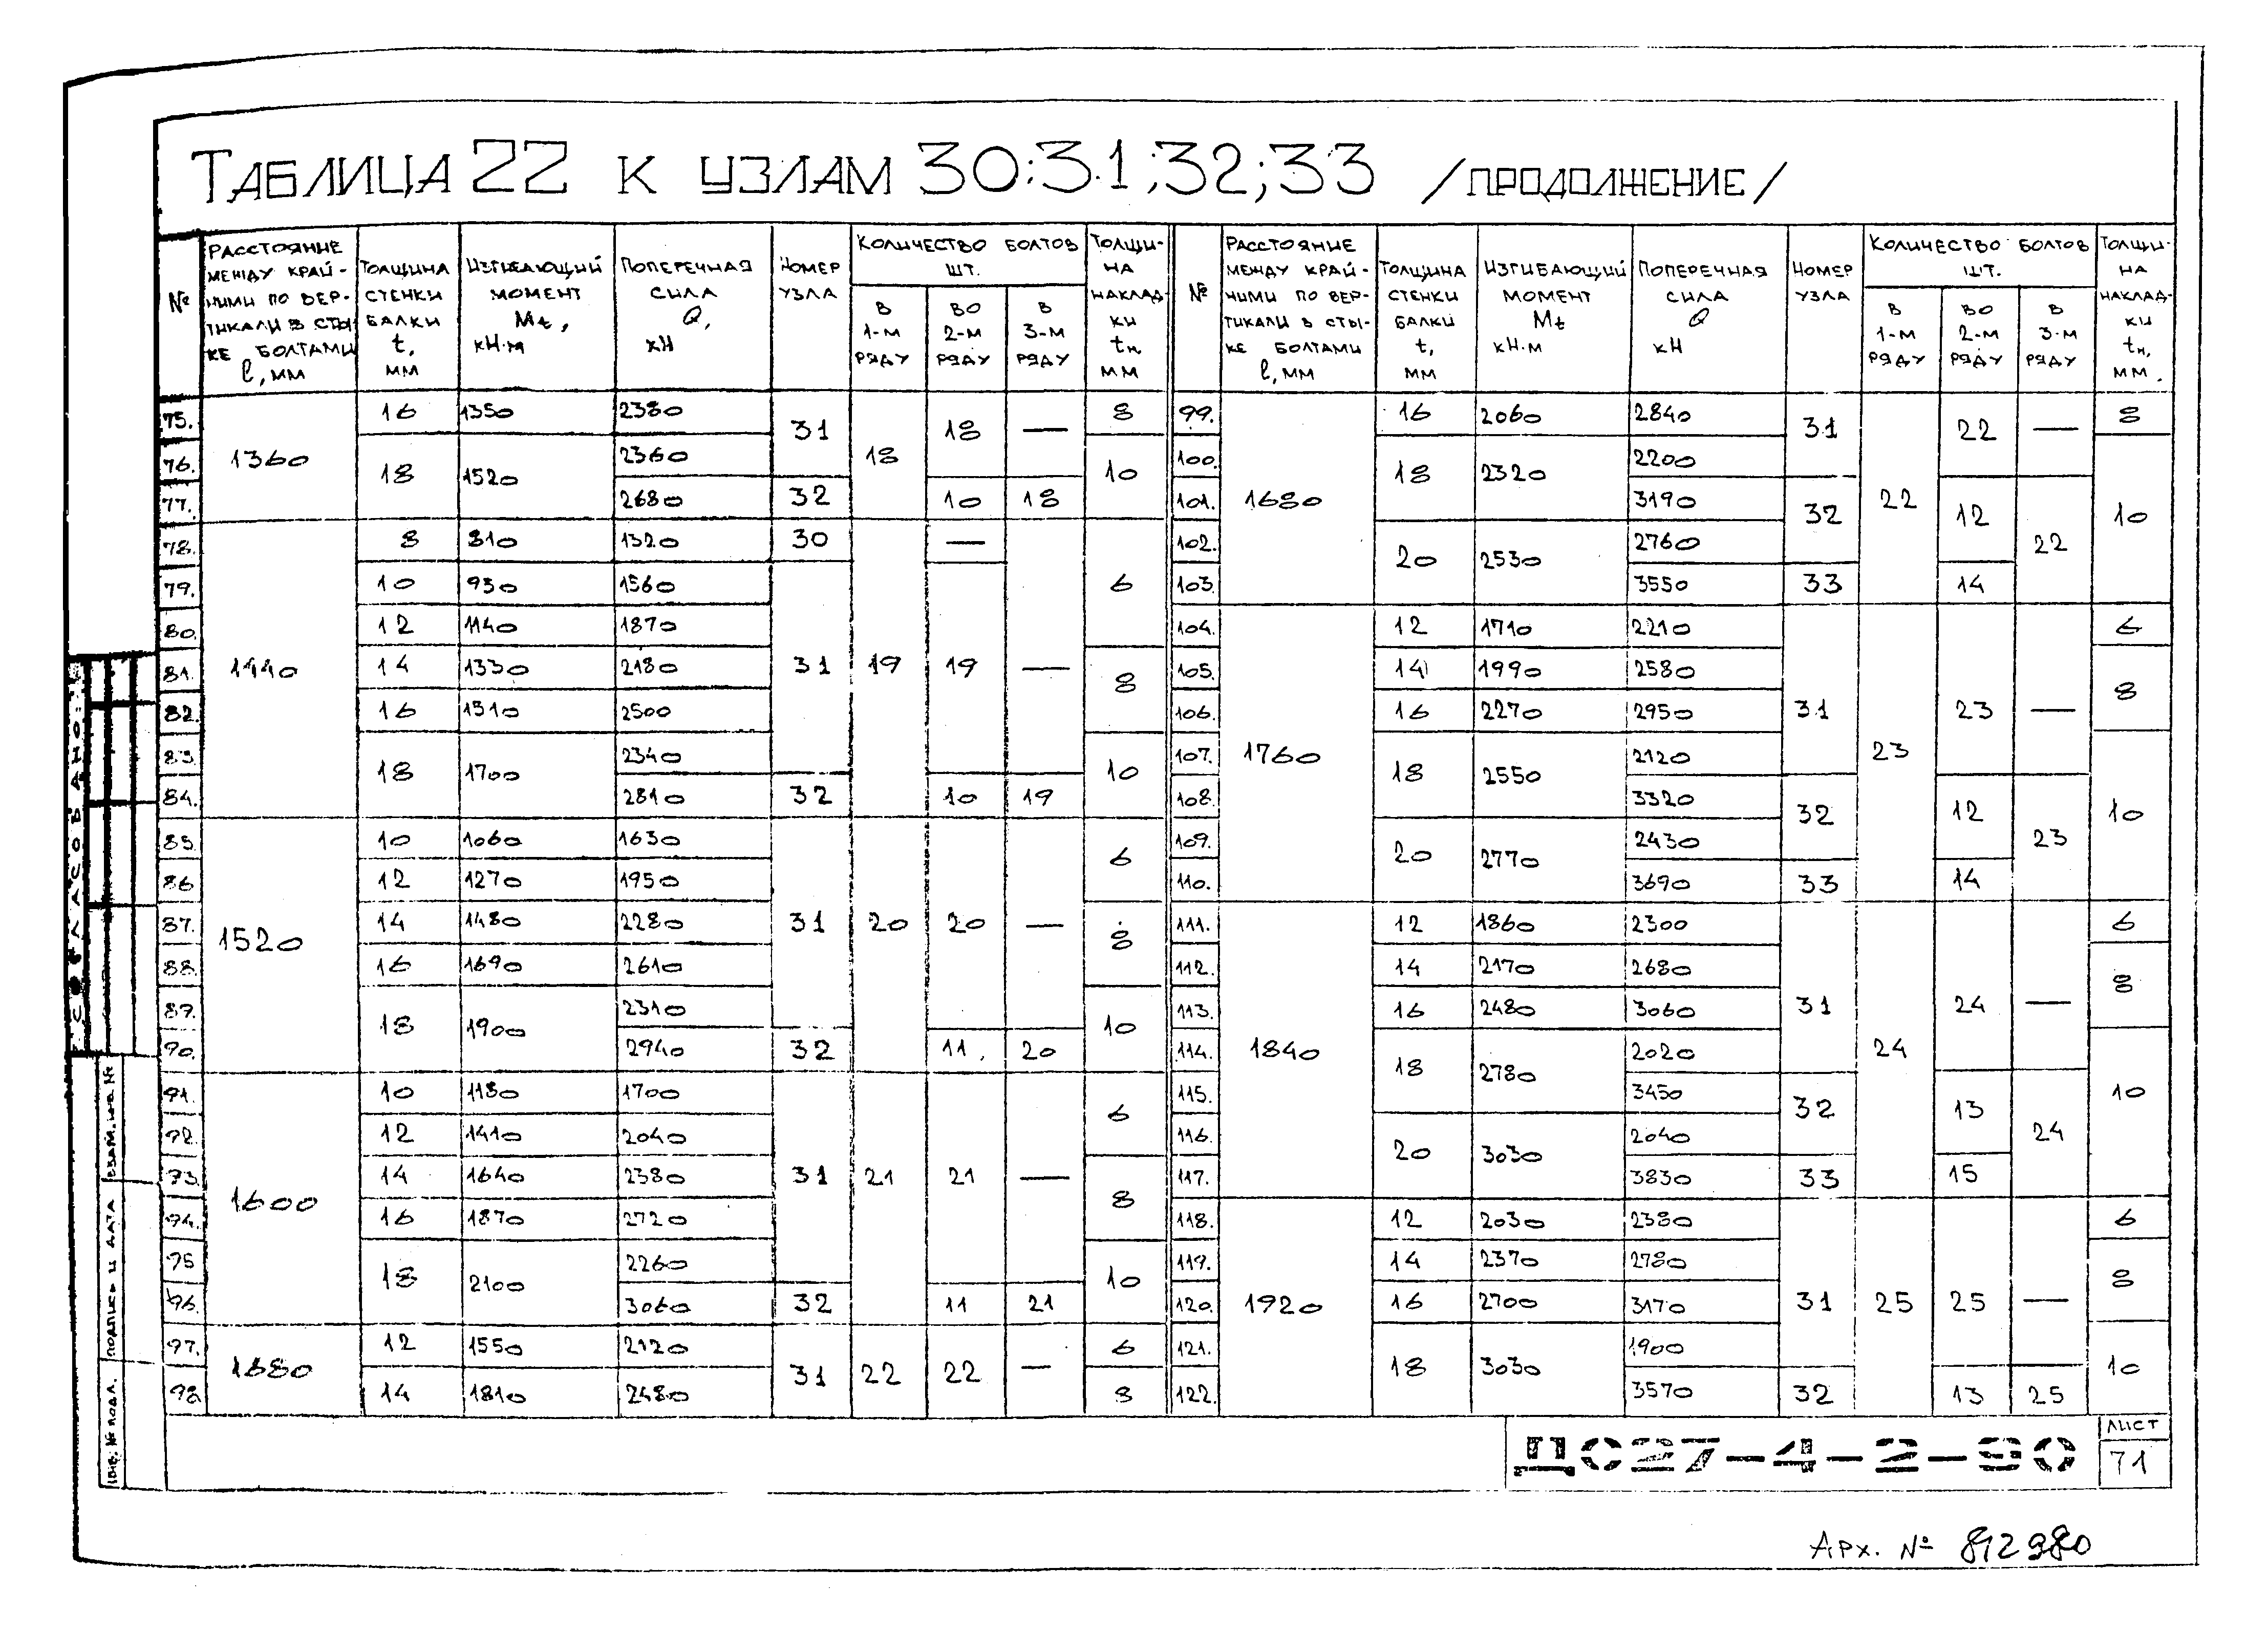 ТАБЛИЦА 22 К УЗЛАМ 30:31;32;33 /ПРОДОЛЖЕНИЕ/
№ РАССТОЯНИЕ МЕЖДУ КРАЙ-НИМИ ПО ВЕР-ТИКАЛИ В СТЫ-КЕ БОЛТАМИ ℓ, ММ ТОЛЩИНА СТЕНКИ БАЛКИ t, ММ ИЗГИБАЮЩИЙ МОМЕНТ Mt, кН·м ПОПЕРЕЧНАЯ СИЛА Q, кН НОМЕР УЗЛА КОЛИЧЕСТВО БОЛТОВ ШТ. В 1-М РЯДУ ВО 2-М РЯДУ В 3-М РЯДУ ТОЛЩИ-НА НАКЛАД-КИ tн, ММ
75. 1360 16 1350 2380 31 18 18 — 8
76. 18 1520 2360 10
77. 2680 32 10 18
78. 1440 8 810 1320 30 19 — 6
79. 10 950 1560 31 19 —
80. 12 1140 1870
81. 14 1330 2180 8
82. 16 1510 2500
83. 18 1700 2340 10
84. 2810 32 10 19
85. 1520 10 1060 1630 31 20 20 — 6
86 12 1270 1950
87. 14 1480 2280 8
88. 16 1690 2610
89. 18 1900 2310 10
90. 2940 32 11 20
91. 1600 10 1180 1700 31 21 21 — 6
92. 12 1410 2040
93. 14 1640 2380 8
94. 16 1870 2720
95 18 2100 2260 10
96. 3060 32 11 21
97. 1680 12 1550 2120 31 22 22 — 6
98 14 1810 2480 8
№ РАССТОЯНИЕ МЕЖДУ КРАЙ-НИМИ ПО ВЕР-ТИКАЛИ В СТЫ-КЕ БОЛТАМИ ℓ, ММ ТОЛЩИНА СТЕНКИ БАЛКИ t, ММ ИЗГИБАЮЩИЙ МОМЕНТ Mt кН·м ПОПЕРЕЧНАЯ СИЛА Q кН НОМЕР УЗЛА КОЛИЧЕСТВО БОЛТОВ ШТ. В 1-М РЯДУ ВО 2-М РЯДУ В 3-М РЯДУ ТОЛЩИ-НА НАКЛАД-КИ tн, ММ.
99. 1680 16 2060 2840 31 22 22 — 8
100. 18 2320 2200 10
101. 3190 32 12 22
102. 20 2530 2760
103. 3550 33 14
104. 1760 12 1710 2210 31 23 23 — 6
105. 14 1990 2580 8
106. 16 2270 2950
107. 18 2550 2120 10
108. 3320 32 12 23
109. 20 2770 2430
110. 3690 33 14
111. 1840 12 1860 2300 31 24 24 — 6
112. 14 2170 2680 8
113. 16 2480 3060
114. 18 2780 2020 10
115. 3450 32 13 24
116. 20 3030 2040
117. 3830 33 15
118. 1920 12 2030 2380 31 25 25 — 6
119. 14 2370 2780 8
120. 16 2700 3170
121. 18 3030 1900 10
122. 3570 32 13 25
СОГЛАСОВАНО:
ВЗАМ. ИНВ. №
ПОДПИСЬ И ДАТА
ИНВ. № ПОДЛ.
ДС27-4-2-90
ЛИСТ
71
Арх. № 812980